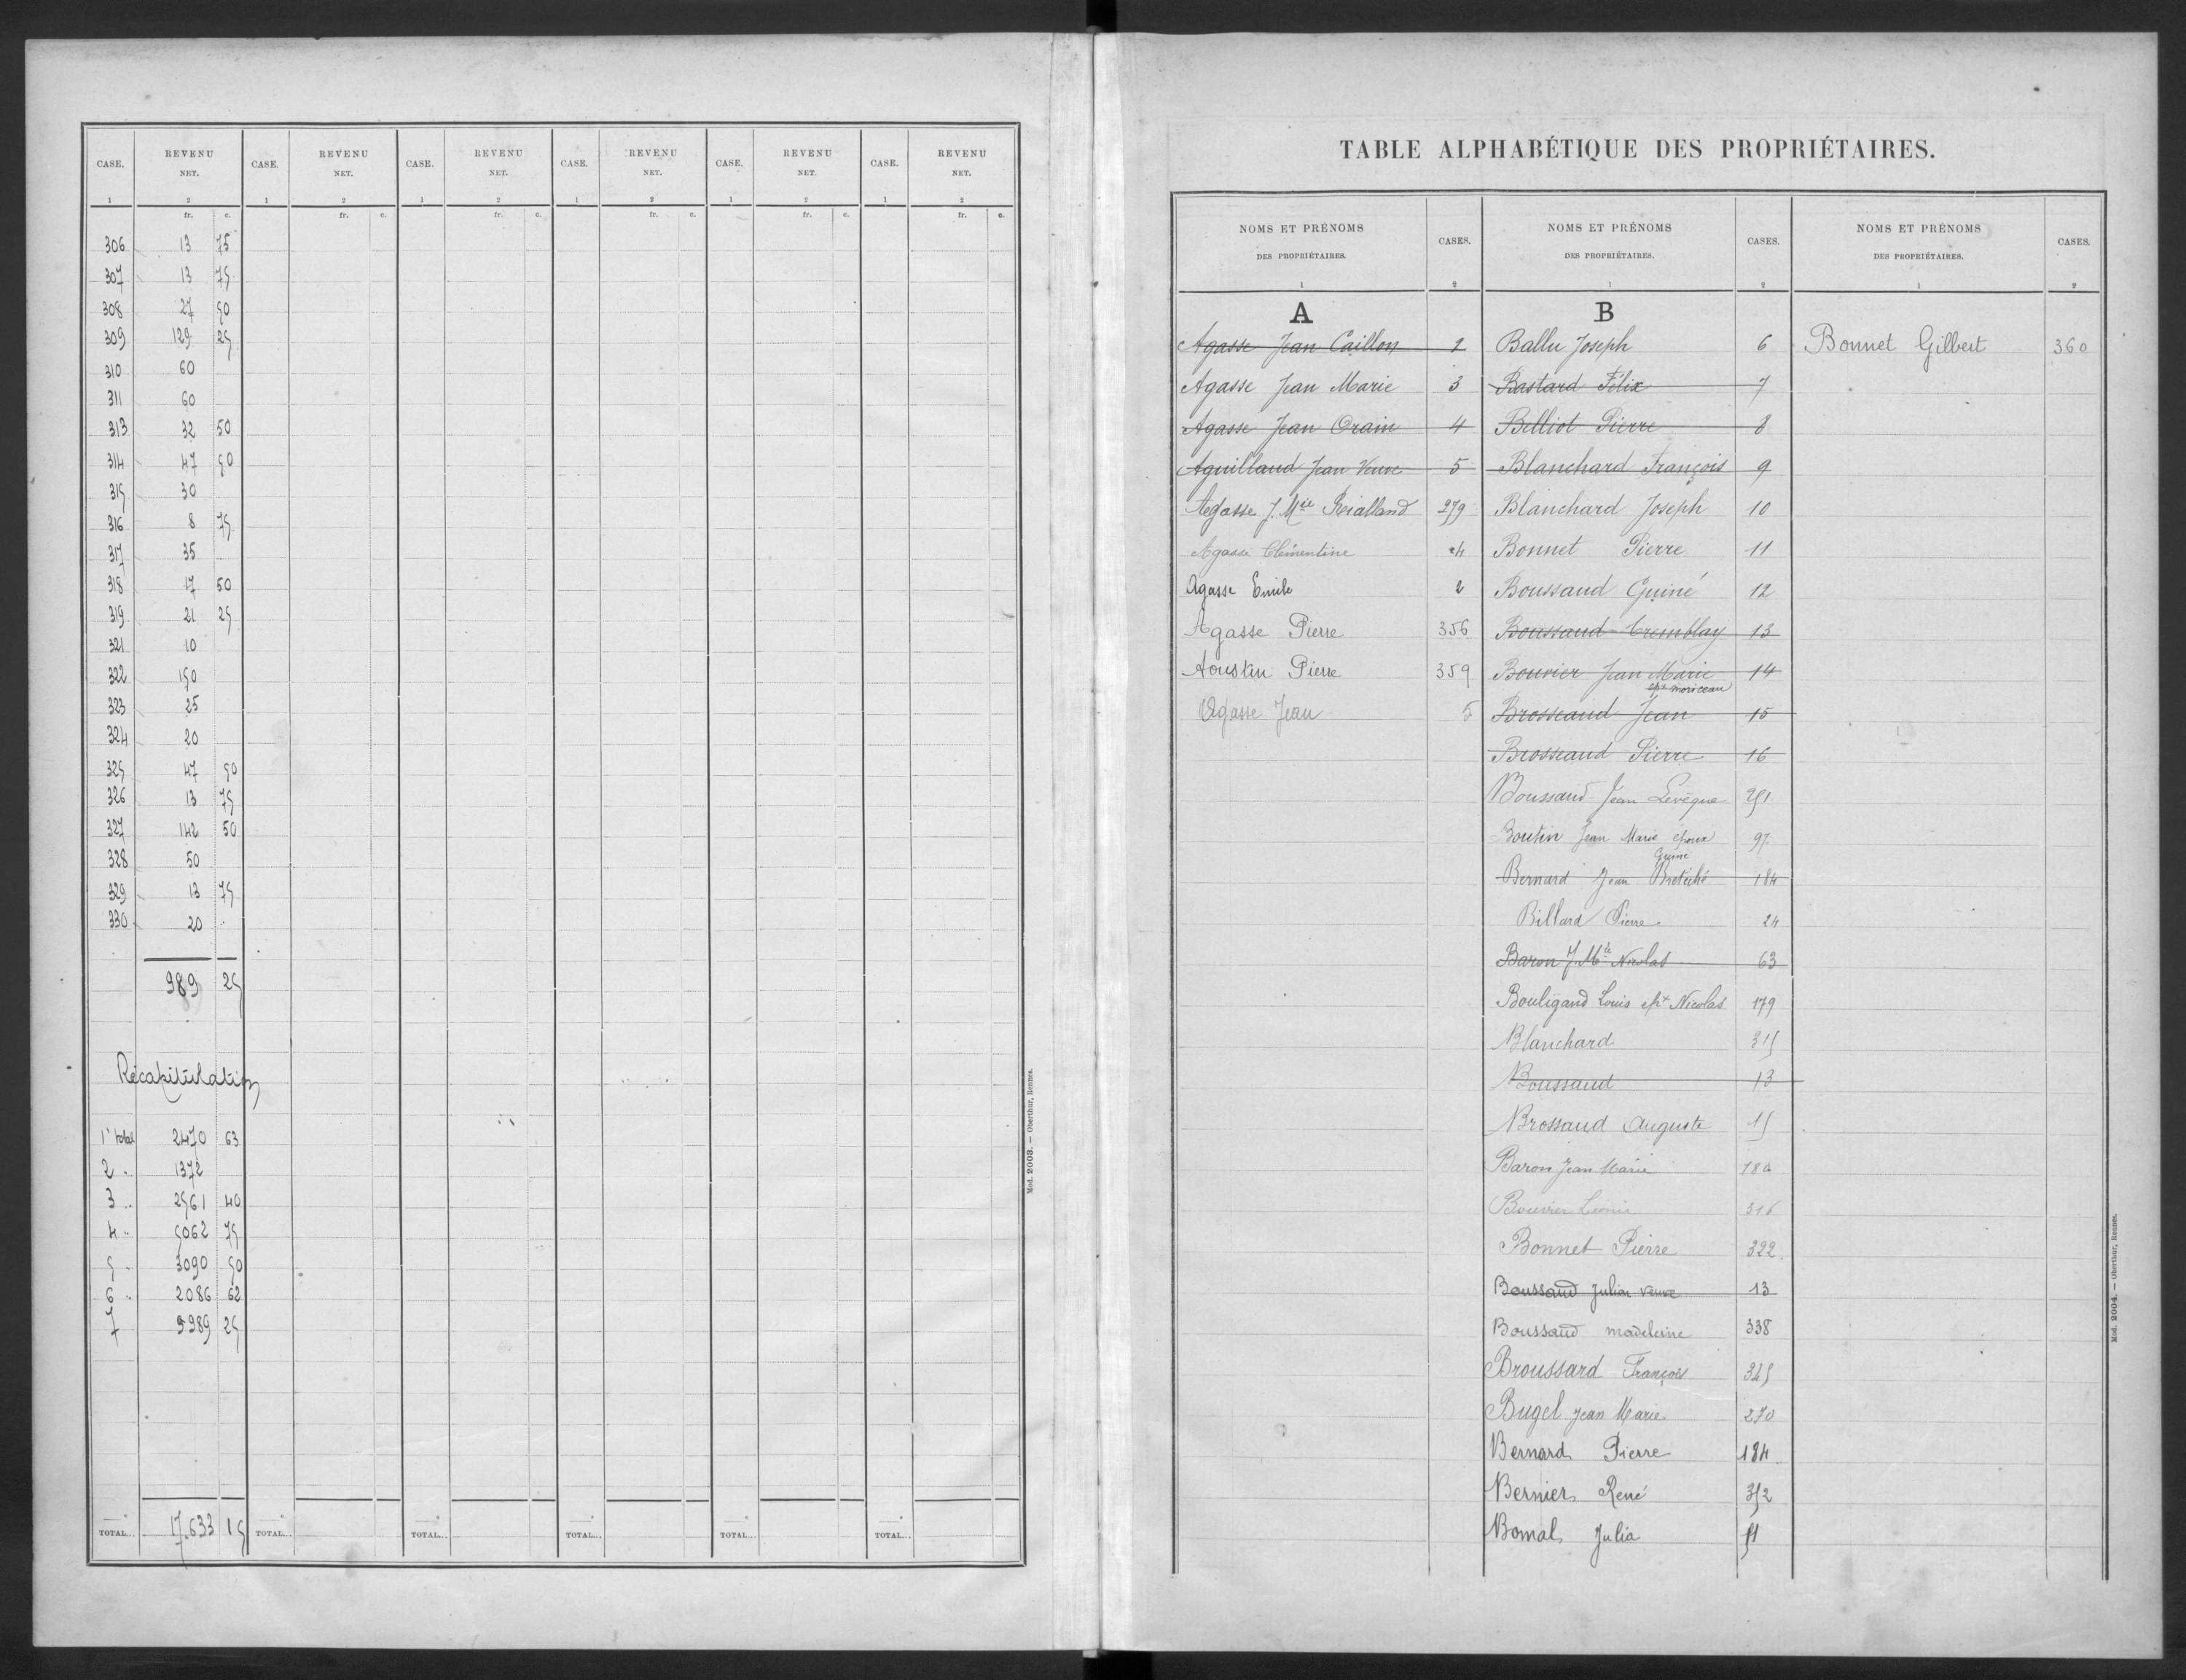 CASE. REVENU NET. CASE. REVENU NET. CASE. REVENU NET. CASE. REVENU NET. CASE. REVENU NET. CASE. REVENU NET.
1 2 1 2 1 2 1 2 1 2 1 2
fr. c. fr. c. fr. c. fr. c. fr. c. fr. c.
306 13 75
307 13 75
308 27 50
309 129 25
310 60
311 60
313 32 50
314 47 50
315 30
316 8 75
317 35
318 17 50
319 21 25
321 10
322 150
323 25
324 20
325 47 50
326 13 75
327 142 50
328 50
329 13 75
330 20 "
989 25
Récapitulation
1r total 2470 63
2 " 1372
3 " 2561 40
4 " 5062 75
5 " 3090 50
6 " 2086 62
7 989 25
TOTAL... 17.633 15 TOTAL... TOTAL... TOTAL... TOTAL... TOTAL...
Mod. 2003. — Oberthur, Rennes.
TABLE ALPHABÉTIQUE DES PROPRIÉTAIRES.
NOMS ET PRÉNOMS DES PROPRIÉTAIRES. CASES. NOMS ET PRÉNOMS DES PROPRIÉTAIRES. CASES. NOMS ET PRÉNOMS DES PROPRIÉTAIRES. CASES.
1 2 1 2 1 2
A
Agasse Jean Caillon 2
Agasse Jean Marie 3
Agasse Jean Orain 4
Aguillaud Jean Veuve 5
Agasse J. Mie Rialland 279
Agasse Clémentine 24
Agasse Emile 2
Agasse Pierre 356
Aoustin Pierre 359
Agasse Jean 5
B
Ballu Joseph 6
Bastard Félix 7
Belliot Pierre 8
Blanchard François 9
Blanchard Joseph 10
Bonnet Pierre 11
Boussaud Guiné 12
Boussaud-Tremblay 13
Bouvier Jean Marie 14
epx moriceau
Brosseaud Jean 15
Brosseaud Pierre 16
Boussaud Jean Levêque 251
Boutin Jean Marie époux 97
Guiné
Bernard Jean Bretéché 184
Billard Pierre 24
Baron J. Mie Nicolas 63
Bouligand Louis epx Nicolas 179
Blanchard 315
Boussaud 13
Brossaud Auguste 15
Baron Jean Marie
Bouvier 316
Bonnet Pierre 322
Boussaud Julien veuve 13
Boussaud madeleine 338
Broussard François 345
Bugel Jean Marie 270
Bernard Pierre 184
Bernier René 352
Bomal Julia 51
Bonnet Gilbert 360
Mod. 2004. — Oberthür, Rennes.